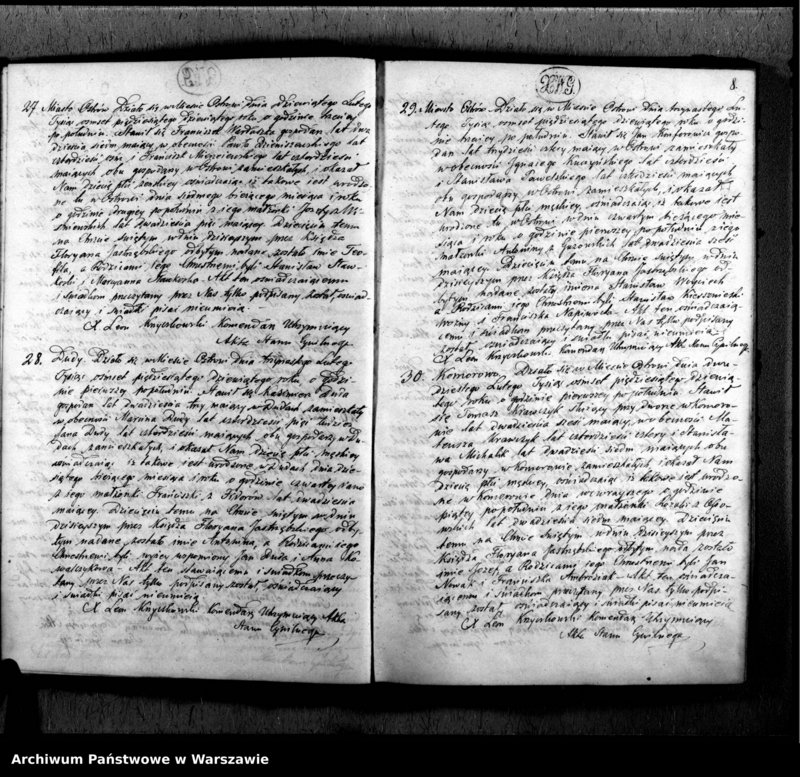 8.
27. Miasto Ostrów. Działo się w Mieście Ostrowi dnia dziewiątego Lutego
Tysiąc osmset pięćdziesiątego dziewiątego roku o godzinie trzeciej
po południu. Stawił się Franciszek gospodarz lat dwa
dzieścia siedm mający w obecności Pawła lat
czterdzieści osm i Franciszka lat czterdzieści
mających obu gospodarzy w Ostrowi zamieszkałych, i okazał
Nam dziecię płci oświadczając iż takowe jest urodzo
ne tu w Ostrowi dnia siódmego bieżącego miesiąca i roku
o godzinie drugiej po południu z jego małżonki Józefy z
lat dwadzieścia pięć mającej. Dziecięciu temu
na Chrzcie świętym w dniu dzisiejszym przez Księdza
Floryana Jastrzębskiego odbytym nadane zostało imie Teo-
fila, a Rodzicami jego Chrzestnemi byli Stanisław
i Maryanna. Akt ten oświadczającemu
i świadkom przeczytany przez Nas tylko podpisany został, oświad-
czający i świadki pisać nieumieją.
X Leon Knyszkowski Komendarz Utrzymujący
Akta Stanu Cywilnego
28. Dudy. Działo się w Mieście Ostrowi dnia trzynastego Lutego
Tysiąc osmset pięćdziesiątego dziewiątego roku, o godzi-
nie pierwszej po południu. Stawił się Kazimierz Duda
gospodarz lat dwadzieścia trzy mający w Dudach zamieszkały
w obecności Marcina Dudy lat czterdzieści pięć tudzież
Jana Dudy lat czterdzieści mających obu gospodarzy w Du-
dach zamieszkałych, i okazał Nam dziecię płci męskiej
oświadczając iż takowe jest urodzone w Dudach dnia dzie-
siątego bieżącego miesiąca i roku o godzinie czwartej rano
z jego małżonki Franciszki z Sidorów lat dwadzieścia
mającej. Dziecięciu temu na Chrzcie świętym w dniu
dzisiejszym przez Księdza Floryana Jastrzębskiego odby-
tym nadane zostało imie, a Rodzicami jego
Chrzestnemi byli wyżej wspomniony Jan Duda i Anna Ko
walczykowa. Akt ten stawiającemu i świadkom przeczy-
tany przez Nas tylko podpisany został, oświadczający
i świadki pisać nieumieją.
X Leon Knyszkowski Komendarz Utrzymujący Akta
Stanu Cywilnego
29. Miasto Ostrów. Działo się w Mieście Ostrowi dnia trzynastego Lu-
tego Tysiąc osmset pięćdziesiątego dziewiątego roku o godzi-
nie trzeciej po południu. Stawił się Jan gospo-
darz lat trzydzieści cztery mający w Ostrowi zamieszkały
w obecności Ignacego lat czterdzieści
i Stanisława Pawelskiego lat czterdzieści mających
obu gospodarzy w Ostrowi zamieszkałych, i okazał
Nam dziecię płci męskiej, oświadczając iż takowe jest
urodzone tu w Ostrowi w dniu czwartym bieżącego mie-
siąca i roku o godzinie pierwszej po południu z jego
małżonki Antoniny z lat dwadzieścia sześć
mającej. Dziecięciu temu na Chrzcie świętym w dniu
dzisiejszym przez Księdza Floryana Jastrzębskiego od
bytym nadane zostały imiona Stanisław Wojciech
a Rodzicami jego Chrzestnemi byli Stanisław
i Franciszka. Akt ten oświadczają-
cemu i świadkom przeczytany przez Nas tylko podpisany
został, oświadczający i świadki pisać nieumieją.
X Leon Knyszkowski Komendarz Utrzymujący Akta Stanu Cywilnego
30. Komorowo. Działo się w Mieście Ostrowi dnia dwu-
dziestego Lutego Tysiąc osmset pięćdziesiątego dziewią-
tego roku o godzinie pierwszej po południu. Stawił
się Tomasz Krawczyk służący przy dworze w Komoro-
wie lat dwadzieścia sześć mający, w obecności Ma-
teusza Krawczyk lat czterdzieści cztery i Stanisła-
wa Michalik lat dwadzieścia siedm mających obu
gospodarzy w Komorowie zamieszkałych, i okazał Nam
dziecię płci męskiej, oświadczając iż takowe jest urodzo-
ne w Komorowie dnia wczorajszego o godzinie
piątej po południu z jego małżonki z
lat dwadzieścia siedm mającej. Dziecięciu
temu na Chrzcie świętym w dniu dzisiejszym przez
Księdza Floryana Jastrzębskiego odbytym nadane zostało
imie Józef, a Rodzicami jego Chrzestnemi byli Jan
Nowak i Franciszka Ambroziak. Akt ten oświadcza-
jącemu i świadkom przeczytany przez Nas tylko podpi-
sany został, oświadczający i świadki pisać nieumieją
X Leon Knyszkowski Komendarz Utrzymujący
Akta Stanu Cywilnego
Archiwum Państwowe w Warszawie